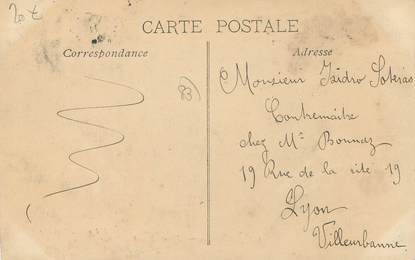 20 €
CARTE POSTALE
Correspondance
Adresse
83)
Monsieur Isidro Soteras
Contremaitre
chez Mr Bonnaz
19 Rue de la cité 19
Lyon
Villeurbanne